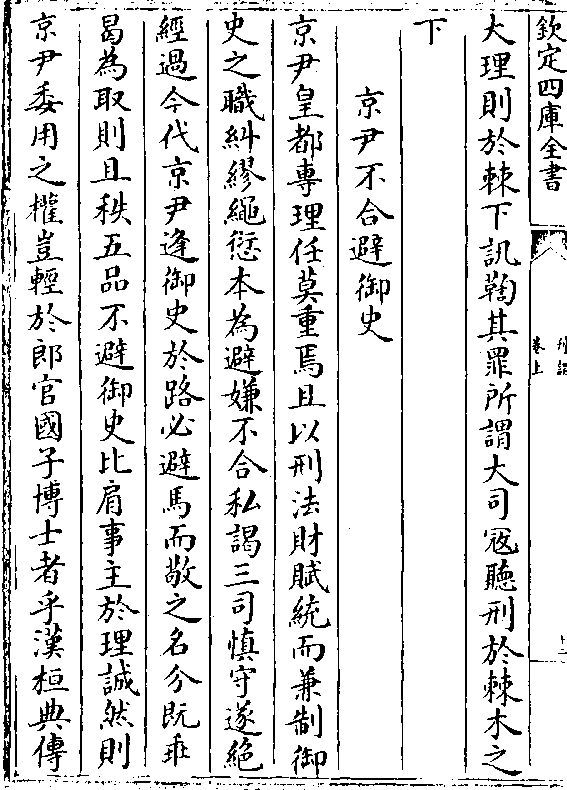 欽定四庫全書
刊誤
卷上
十二
大理則於棘下訊鞫其罪所謂大司寇聽刑於棘木之
下
京尹不合避御史
京尹皇都專理任莫重焉且以刑法財賦統而兼制御
史之職糾繆繩愆本為避嫌不合私謁三司慎守遂絕
經過今代京尹逢御史於路必避馬而敬之名分既乖
曷為取則且秩五品不避御史比肩事主於理誠然則
京尹委用之權豈輕於郎官國子博士者乎漢桓典傳